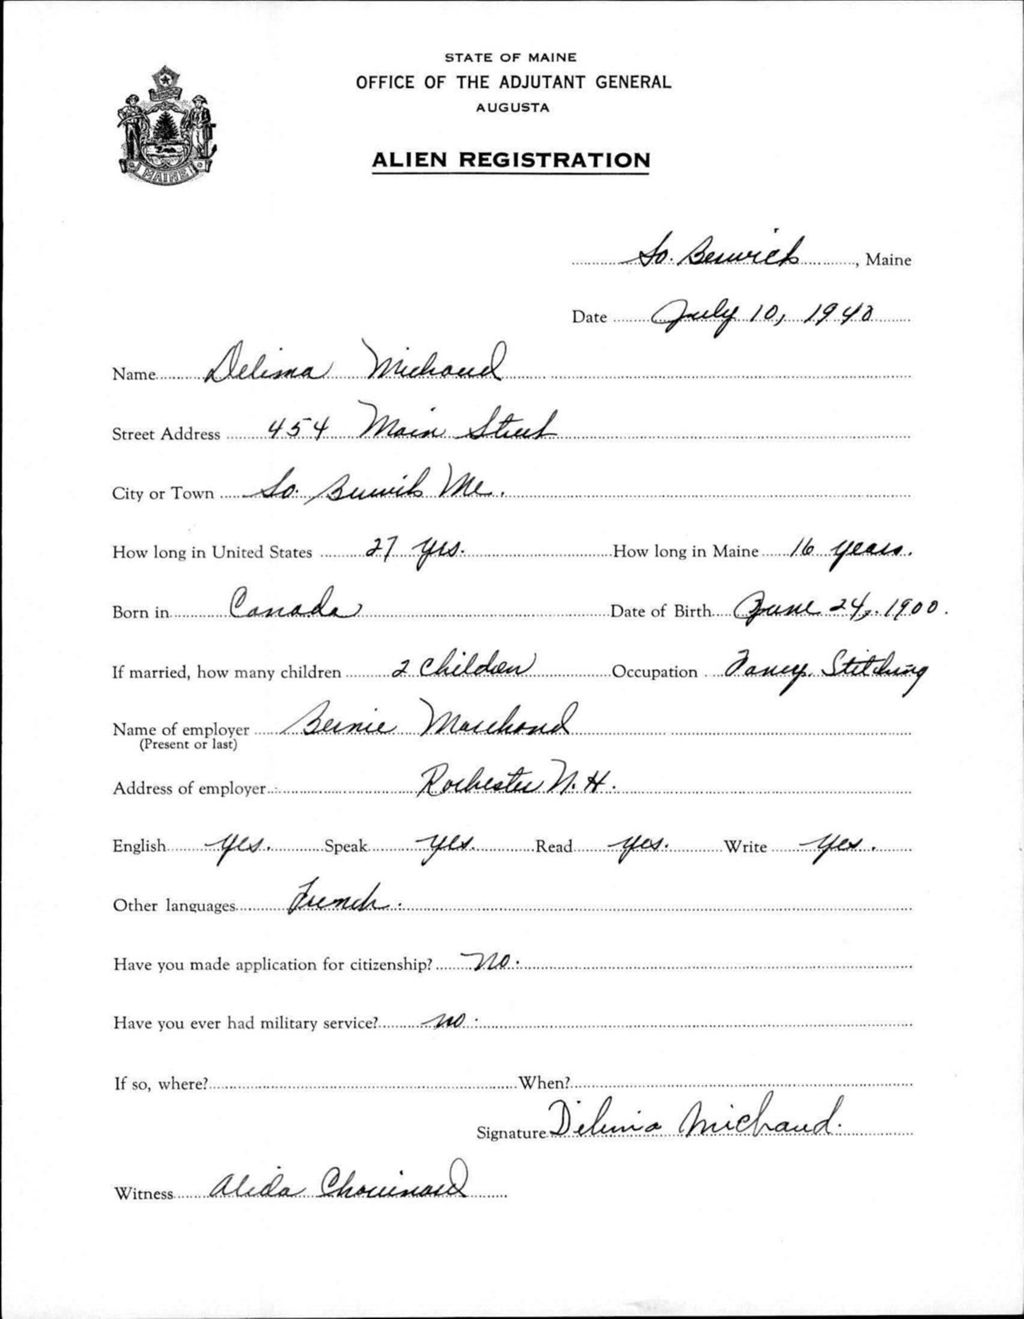 STATE OF MAINE
OFFICE OF THE ADJUTANT GENERAL
AUGUSTA
ALIEN REGISTRATION
MAINE
So. Berwick, Maine
Date July 10, 1940
Name Delima Michaud
Street Address 454 Main Street
City or Town So. Berwick Me.
How long in United States 27 yrs. How long in Maine 16 years.
Born in Canada Date of Birth June 24, 1900.
If married, how many children 2 children Occupation Fancy Stitching
Name of employer Bernie Marchand
(Present or last)
Address of employer Rochester N.H.
English yes. Speak yes. Read yes. Write yes.
Other languages French.
Have you made application for citizenship? No.
Have you ever had military service? no.
If so, where? When?
Signature Delima Michaud.
Witness Alida Chouinard